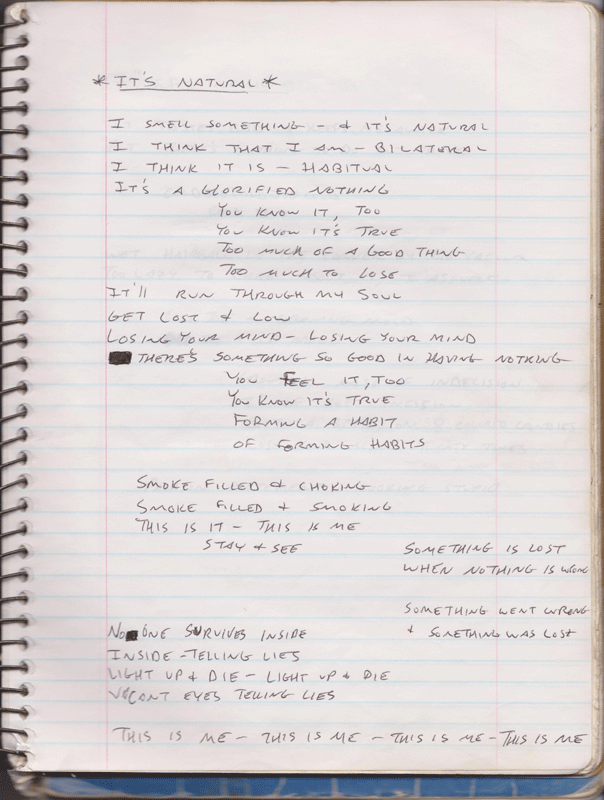 * IT'S NATURAL *
I SMELL SOMETHING - & IT'S NATURAL
I THINK THAT I AM - BILATERAL
I THINK IT IS - HABITUAL
IT'S A GLORIFIED NOTHING
YOU KNOW IT, TOO
YOU KNOW IT'S TRUE
TOO MUCH OF A GOOD THING
TOO MUCH TO LOSE
IT'll RUN THROUGH MY SOUL
GET LOST & LOW
LOSING YOUR MIND - LOSING YOUR MIND
THERE'S SOMETHING SO GOOD IN HAVING NOTHING
YOU FEEL IT, TOO
YOU KNOW IT'S TRUE
FORMING A HABIT
OF FORMING HABITS
SMOKE FILLED & CHOKING
SMOKE FILLED & SMOKING
THIS IS IT - THIS IS ME
STAY & SEE
SOMETHING IS LOST
WHEN NOTHING IS WRONG
SOMETHING WENT WRONG
& SOMETHING WAS LOST
NO ONE SURVIVES INSIDE
INSIDE - TELLING LIES
LIGHT UP & DIE - LIGHT UP & DIE
VACANT EYES TELLING LIES
THIS IS ME - THIS IS ME - THIS IS ME - THIS IS ME